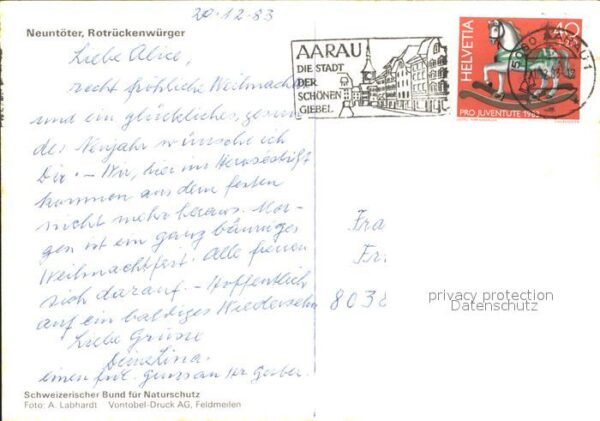 20.12.83
Neuntöter, Rotrückenwürger
Liebe Alice,
recht fröhliche Weihnachten
und ein glückliches, gesun-
des Neujahr wünsche ich
Dir. – Wir, hier im
kommen aus dem festen
nicht mehr heraus. Mor-
gen ist ein ganz
Weihnachtfest. Alle freuen
sich darauf. – Hoffentlich
auf ein baldiges Wiedersehn
Liebe Grüsse
Deine Lina.
einen frdl.
Schweizerischer Bund für Naturschutz
Foto: A. Labhardt Vontobel-Druck AG, Feldmeilen
AARAU
DIE STADT
DER
SCHÖNEN
GIEBEL
5000 AARAU 1
HELVETIA
40
PRO JUVENTUTE 1983
Fra
Fr
8038
privacy protection
Datenschutz